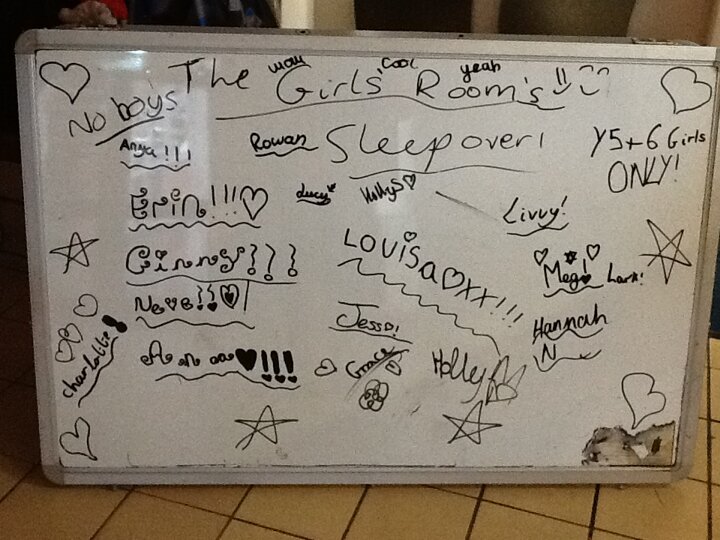 wow cool yeah
The Girls' Room's!!
No boys
Sleepover!
Y5+6 Girls
ONLY!
Anya!!!
Rowan
Erin!!!
Lucy
Holly S
Livvy!
Ginny
LOUISA xx!!!
Meg!
Lara!
Neve
Jess!
Hannah
N
charlotte
Anna !!!
Grace
Holly